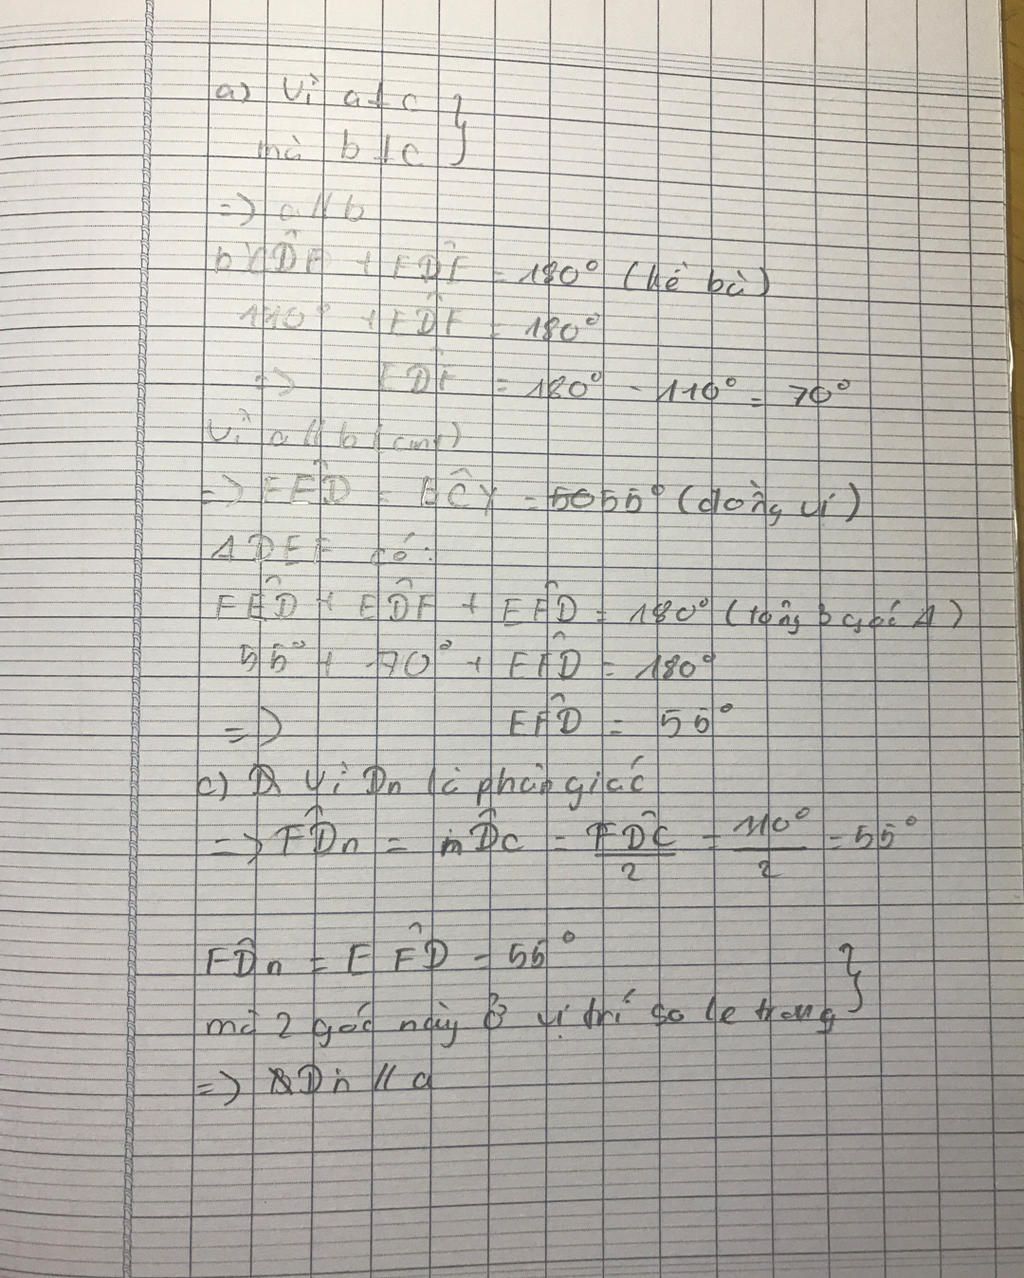 a) Vì a ⊥ c }
mà b ⊥ c
=> a // b
b) CD̂F + ED̂F = 180° (kề bù)
110° + ED̂F = 180°
=> ED̂F = 180° - 110° = 70°
Vì a // b (cmt)
=> FÊD = BĈy = 55° (đồng vị)
Δ DEF có:
FÊD + ED̂F + EF̂D = 180° (tổng 3 góc Δ)
55° + 70° + EF̂D = 180°
=> EF̂D = 55°
c) Vì Dn là phân giác
=> FD̂n = nD̂c = FD̂C/2 = 110°/2 = 55°
FD̂n = EF̂D = 55° }
mà 2 góc này ở vị trí so le trong
=> Dn // a